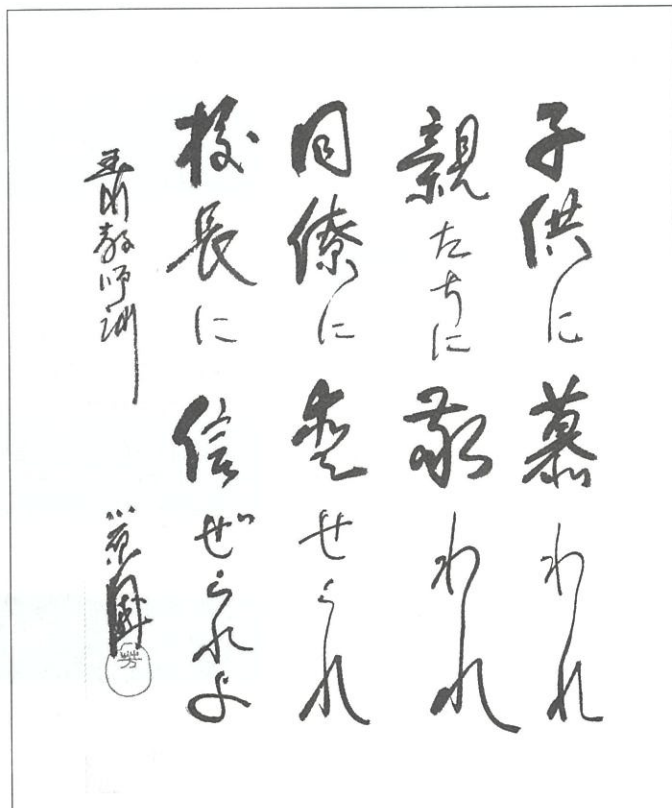 子供に慕われ
親たちに敬われ
同僚に愛せられ
校長に信ぜられよ
玉川教師訓
芳